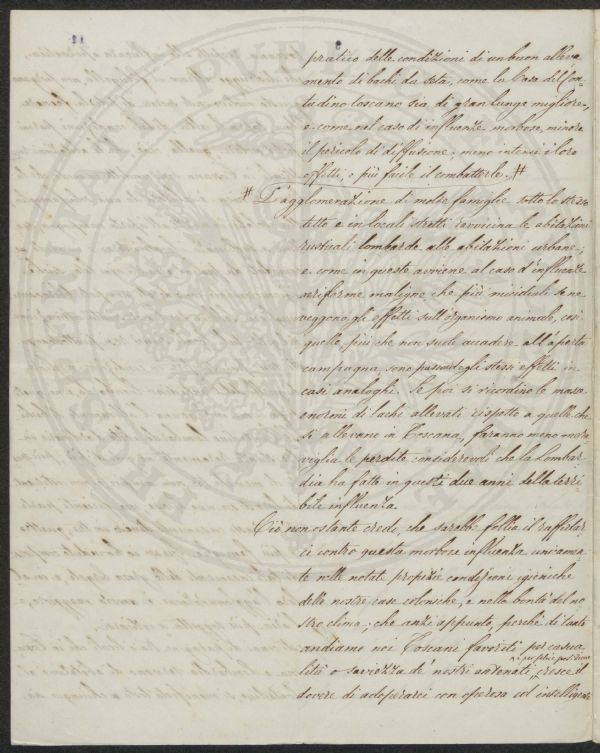 9
pratico delle condizioni di un buon alleva
mento di bachi da seta, come la Casa del Con-
tadino toscano sia di gran lunga migliore,
e come nel caso di influenze morbose, minore
il pericolo di diffusione, meno intensi i loro
effetti, e più facile il combatterle. #
# L'agglomerazione di molte famiglie sotto lo stesso
tetto e in locali stretti ravvicina le abitazioni
rusticali lombarde alle abitazioni urbane;
e come in queste avviene al caso d'influenze
aeriformi maligne che più micidiali se ne
veggono gli effetti sull'organismo animale, così
quelle più che non suole accadere all'aperta
campagna, sono gli stessi effetti in
casi analoghi. Se poi si ricordino le masse
enormi di bachi allevati rispetto a quelle che
si allevano in Toscana, faranno meno mera
viglia le perdite considerevoli che la Lombar
dia ha fatte in questi due anni della terri
bile influenza.
Ciò non ostante credo, che sarebbe follia il raffidar
ci contro questa morbosa influenza unicamen
te nelle notate propizie condizioni igieniche
delle nostre case coloniche, e nella bontà del no
stro clima; che anzi appunto, perchè di tanto
andiamo noi Toscani favoriti per casua
lità o saviezza de' nostri antenati, cresce il
dovere di adoperarci con operosa ed intelligente